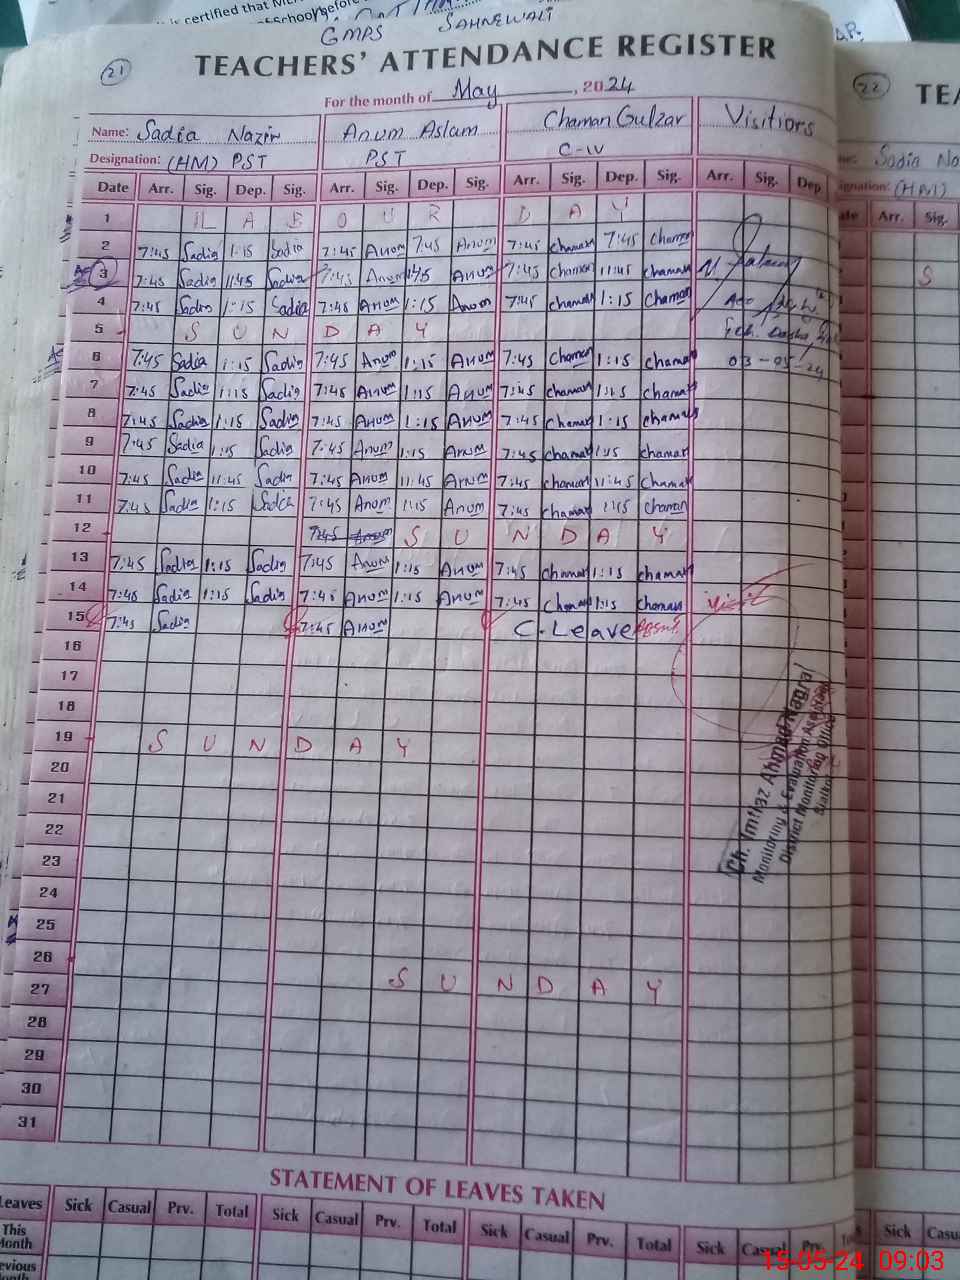 is certified that
of School before
GMPS SAHNEWALI
21
TEACHERS' ATTENDANCE REGISTER
For the month of May, 2024
Name: Sadia Nazir Anum Aslam Chaman Gulzar Visitiors
Designation: (HM) PST PST C-IV
Date Arr. Sig. Dep. Sig. Arr. Sig. Dep. Sig. Arr. Sig. Dep. Sig. Arr. Sig. Dep.
1 L A B O U R D A Y
2 7:45 Sadia 1:15 Sadia 7:45 Anum 7:45 Anum 7:45 chaman 7:45 chaman
3 7:45 Sadia 11:45 Sadia 7:45 Anum 11:45 Anum 7:45 chaman 11:45 chaman
4 7:45 Sadia 1:15 Sadia 7:45 Anum 1:15 Anum 7:45 chaman 1:15 chaman
5 S U N D A Y
6 7:45 Sadia 1:15 Sadia 7:45 Anum 1:15 Anum 7:45 chaman 1:15 chaman
03-05-24
7 7:45 Sadia 1:15 Sadia 7:45 Anum 1:15 Anum 7:45 chaman 1:15 chaman
8 7:45 Sadia 1:15 Sadia 7:45 Anum 1:15 Anum 7:45 chaman 1:15 chaman
9 7:45 Sadia 1:15 Sadia 7:45 Anum 1:15 Anum 7:45 chaman 1:15 chaman
10 7:45 Sadia 11:45 Sadia 7:45 Anum 11:45 Anum 7:45 chaman 11:45 chaman
11 7:45 Sadia 1:15 Sadia 7:45 Anum 1:15 Anum 7:45 chaman 1:15 chaman
12 7:45 Anum S U N D A Y
13 7:45 Sadia 1:15 Sadia 7:45 Anum 1:15 Anum 7:45 chaman 1:15 chaman
14 7:45 Sadia 1:15 Sadia 7:45 Anum 1:15 Anum 7:45 chaman 1:15 chaman
15 7:45 Sadia 7:45 Anum C-Leave
visit
16
17
18
19 S U N D A Y
20
21
22
23
24
25
26
27 S U N D A Y
28
29
30
31
Ch. Imtiaz Ahmad Nagra
Monitoring & Evaluation Assistant
District Monitoring Office
STATEMENT OF LEAVES TAKEN
Leaves Sick Casual Prv. Total Sick Casual Prv. Total Sick Casual Prv. Total Sick Casual Prv.
This Month
22
Sadia
(HM)
Arr. Sig.
S
Sick
15-05-24 09:03